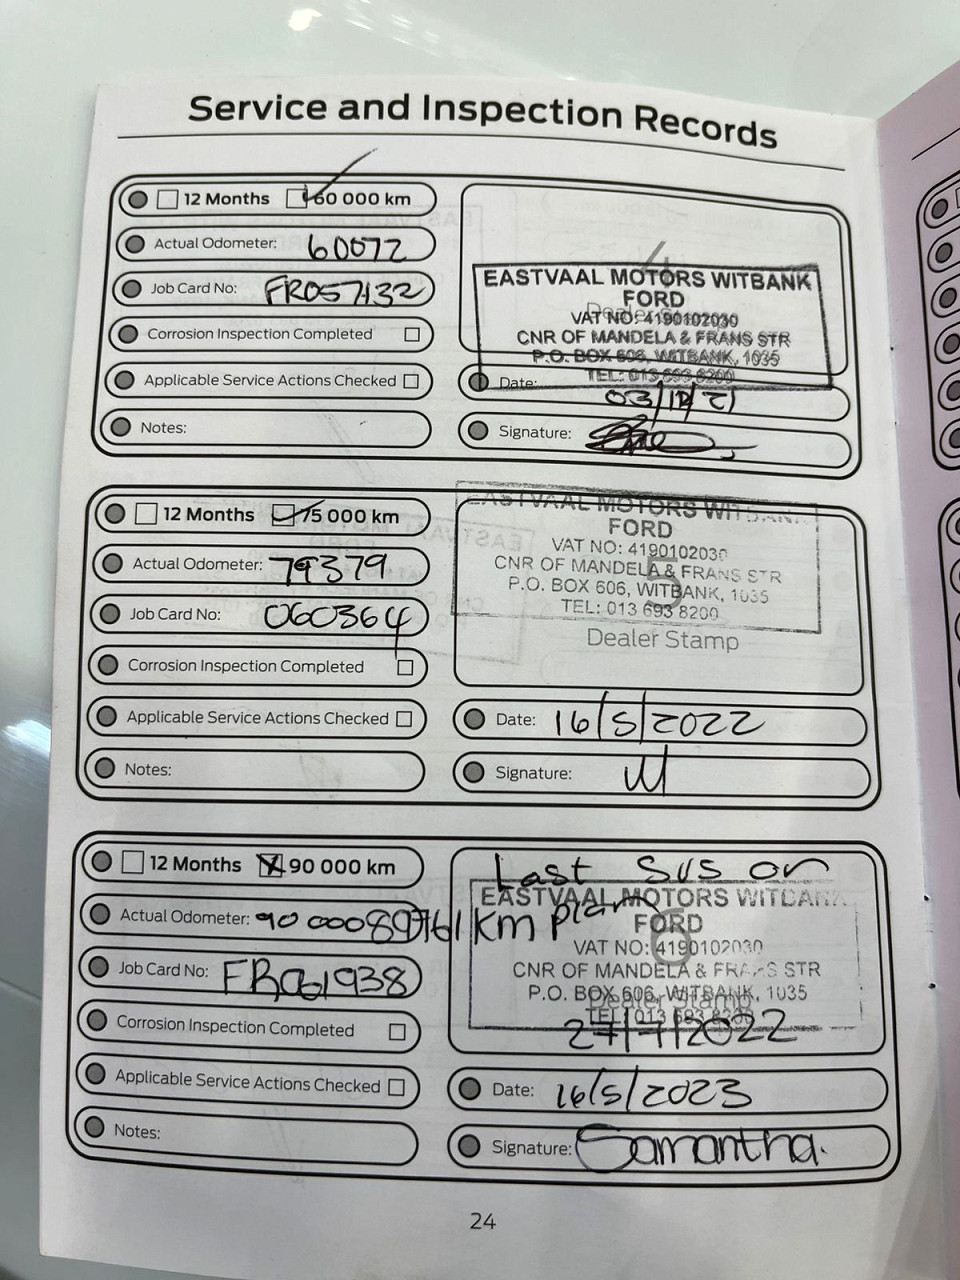 Service and Inspection Records
12 Months 60 000 km
Actual Odometer: 60072
Job Card No: FR057132
Corrosion Inspection Completed
Applicable Service Actions Checked
Notes:
4
EASTVAAL MOTORS WITBANK
FORD
VAT NO: 4190102030
CNR OF MANDELA & FRANS STR
P.O. BOX 606, WITBANK, 1035
TEL: 013 693 8200
Date: 03/12/21
Signature:
12 Months 75 000 km
Actual Odometer: 79379
Job Card No: 060364
Corrosion Inspection Completed
Applicable Service Actions Checked
Notes:
EASTVAAL MOTORS WITBANK
FORD
VAT NO: 4190102030
CNR OF MANDELA & FRANS STR
5
P.O. BOX 606, WITBANK, 1035
TEL: 013 693 8200
Dealer Stamp
Date: 16/5/2022
Signature:
12 Months 90 000 km
Actual Odometer: 90 000 89761 km
Job Card No: FR061938
Corrosion Inspection Completed
Applicable Service Actions Checked
Notes:
Last SVS on
plan
EASTVAAL MOTORS WITBANK
FORD
6
VAT NO: 4190102030
CNR OF MANDELA & FRANS STR
P.O. BOX 606, WITBANK, 1035
Dealer Stamp
TEL: 013 693 8200
27/7/2022
Date: 16/5/2023
Signature: Samantha.
24